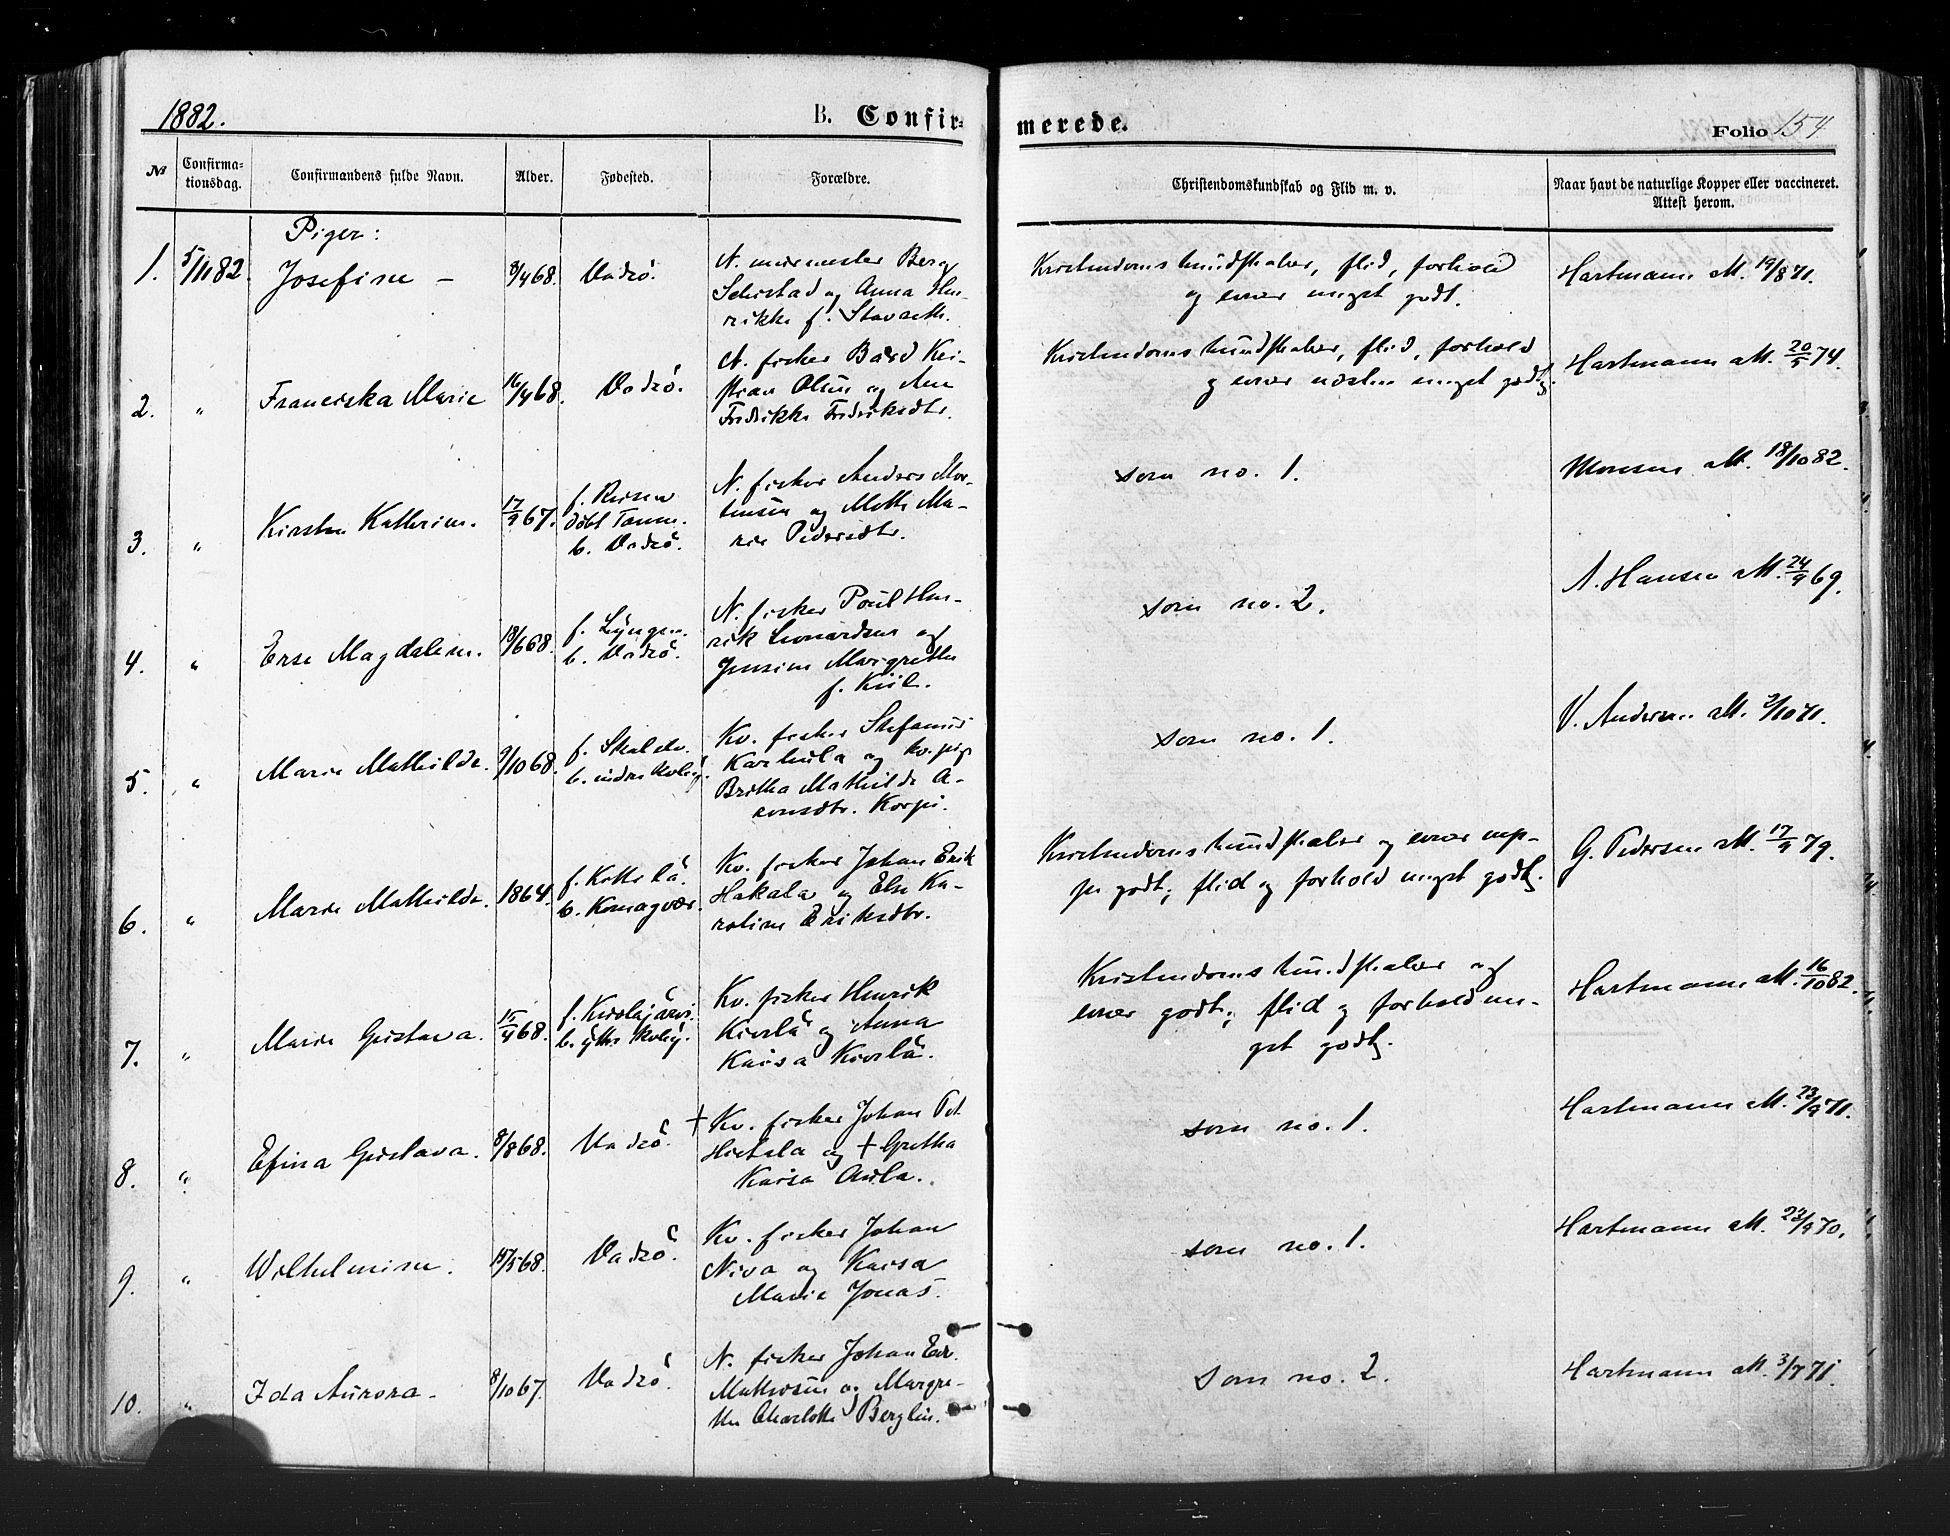 1882.
B. Confir-
merede.
Folio 154
№
Confirma-
tionsdag.
Confirmandens fulde Navn.
Alder.
Fødested.
Forældre.
Christendomskundskab og Flid m. v.
Naar havt de naturlige Kopper eller vaccineret.
Attest herom.
Piger:
1. 5/11 82. Josefine – 3/4 68. Vadsö.
N.
Selistad og Anna Hen-
rikke f.
Kristendoms kundskaber, flid, forhold
og evner meget godt.
Hartmann att. 19/8 71.
2. " Franciska Marie 16/4 68. Vadsö.
N. fisker Bård Kri-
stian Olsen og Ane
Fredrikke Fredriksdtr.
Kristendoms kundskaber, flid, forhold
og evner næsten meget godt.
Hartmann att. 20/5 74.
3. " Kirsten Kathrine. 17/9 67.
f. Reisen
döbt Tanen.
b. Vadsö.
N. fisker Anders Mor-
tensen og Mette Ma-
rie Pedersdtr.
som no. 1.
Monsen att. 18/10 82.
4. " Erse Magdalene. 18/6 68.
f. Lyngen.
b. Vadsö.
N. fisker Poul Hen-
rik Leonardsen og
Jensine Margrethe
f. Kiil.
som no. 2.
A. Hansen att. 24/9 69.
5. " Marie Mathilde. 9/10 68.
f. Skalelv.
b. indre Kvbÿ.
Kv. fisker Stefanus
Karhula og kv. pige
Britha Mathilde A-
ronsdtr. Korpi.
som no. 1.
V. Andersen att. 2/10 71.
6. " Marie Mathilde. 1864.
f. Kittilä.
b. Komagvær.
Kv. fisker Johan Erik
Hakala og Else Ka-
roline Eriksdtr.
Kristendoms kundskaber og evner
godt; flid og forhold meget godt.
G. Pedersen att. 17/9 79.
7. " Marie Gustava. 15/9 68.
b. ÿtre Kvbÿ.
Kv. fisker Henrik
og Anna
Kaisa
Kristendoms kundskaber og
evner godt; flid og forhold me-
get godt.
Hartmann att. 16/10 82.
8. " Efina Gustava. 8/8 68. Vadsö.
+ Kv. fisker Johan Pet.
Hietala og + Gretha
Kaisa Aula.
som no. 1.
Hartmann att. 23/9 71.
9. " Wilhelmine. 17/5 68. Vadsö.
Kv. fisker Johan
Niva og Kaisa
Maria Jonas.
som no. 1.
Hartmann att. 23/9 70.
10. " Ida Aurora – 8/10 67. Vadsö.
N. fisker Johan Edv.
Mathisen og Margre-
the Charlotte Berglin.
som no. 2.
Hartmann att. 3/7 71.